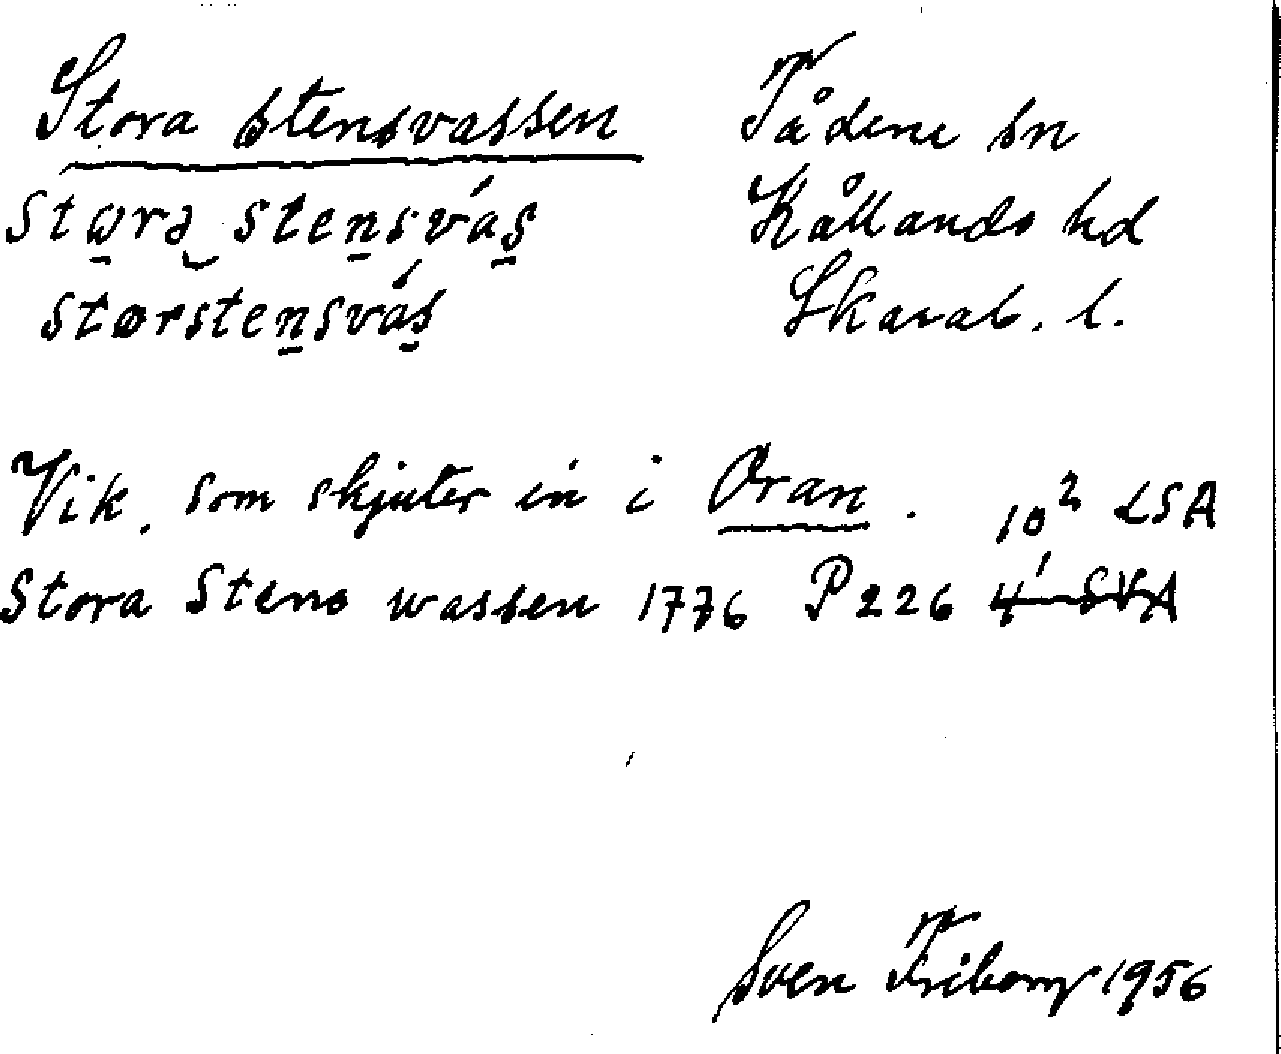 Stora stensvassen
Tådene sn
størə stensvás
Kållands hd
størstensvás
Skarab. l.
Vik, som skjuter in i Oran. 10² LSA
Stora Stens wassen 1776 P226 4¹ SVA
Sven Friborg 1956